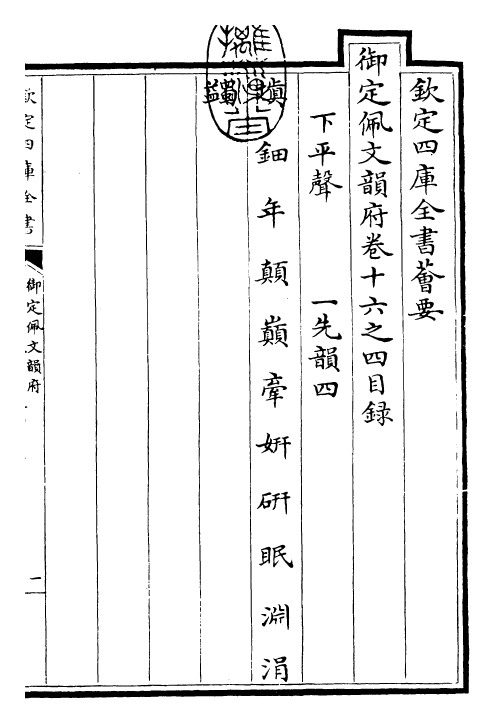 欽定四庫全書薈要
御定佩文韻府卷十六之四目録
下平聲　一先韻四
鈿年顛巔牽妍研眠淵涓
欽定四庫全書
御定佩文韻府
一